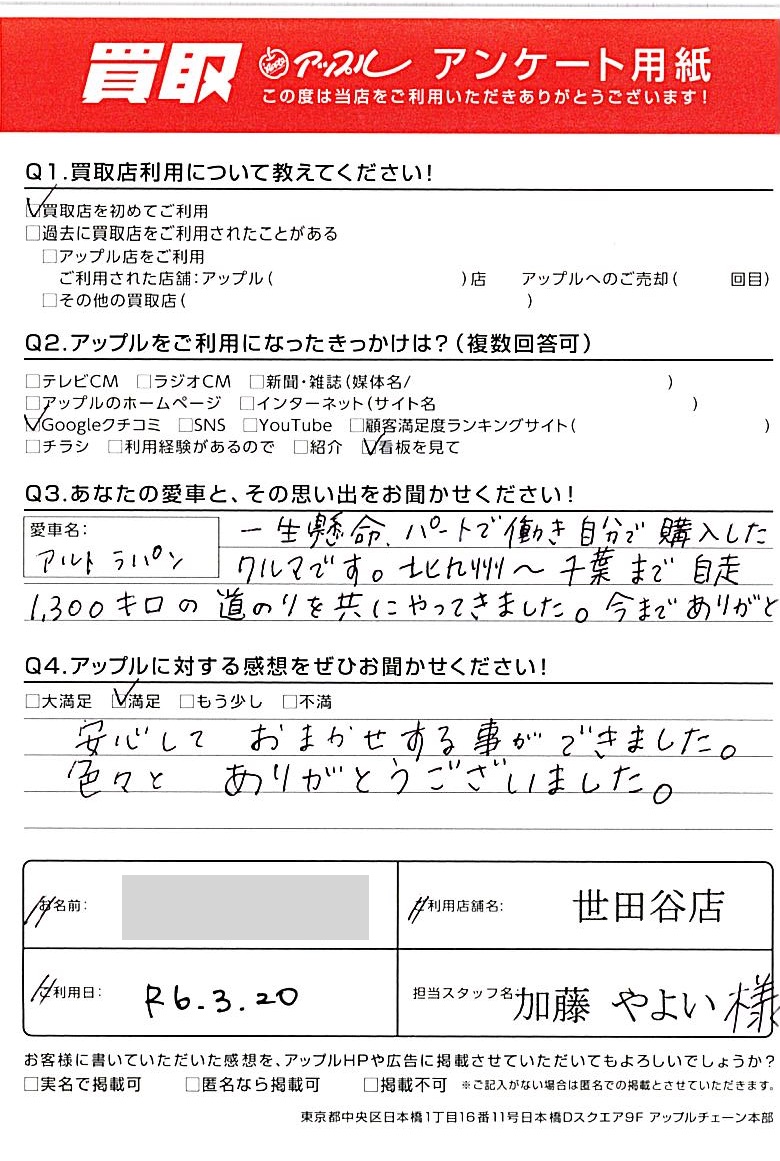 買取 アップル アンケート用紙
この度は当店をご利用いただきありがとうございます!
Q1.買取店利用について教えてください!
☑買取店を初めてご利用
□過去に買取店をご利用されたことがある
□アップル店をご利用
ご利用された店舗:アップル( )店 アップルへのご売却( 回目)
□その他の買取店( )
Q2.アップルをご利用になったきっかけは?(複数回答可)
□テレビCM □ラジオCM □新聞・雑誌(媒体名/ )
□アップルのホームページ □インターネット(サイト名 )
☑Googleクチコミ □SNS □YouTube □顧客満足度ランキングサイト( )
□チラシ □利用経験があるので □紹介 ☑看板を見て
Q3.あなたの愛車と、その思い出をお聞かせください!
愛車名:
アルト ラパン
一生懸命、パートで働き自分で購入した
クルマです。北九州～千葉まで自走
1,300キロの道のりを共にやってきました。今までありがと
Q4.アップルに対する感想をぜひお聞かせください!
□大満足 ☑満足 □もう少し □不満
安心しておまかせする事ができました。
色々とありがとうございました。
お名前:
ご利用店舗名: 世田谷店
ご利用日: R6.3.20
担当スタッフ名: 加藤 やよい 様
お客様に書いていただいた感想を、アップルHPや広告に掲載させていただいてもよろしいでしょうか?
□実名で掲載可 □匿名なら掲載可 □掲載不可 ※ご記入がない場合は匿名での掲載とさせていただきます。
東京都中央区日本橋1丁目16番11号日本橋Dスクエア9F アップルチェーン本部